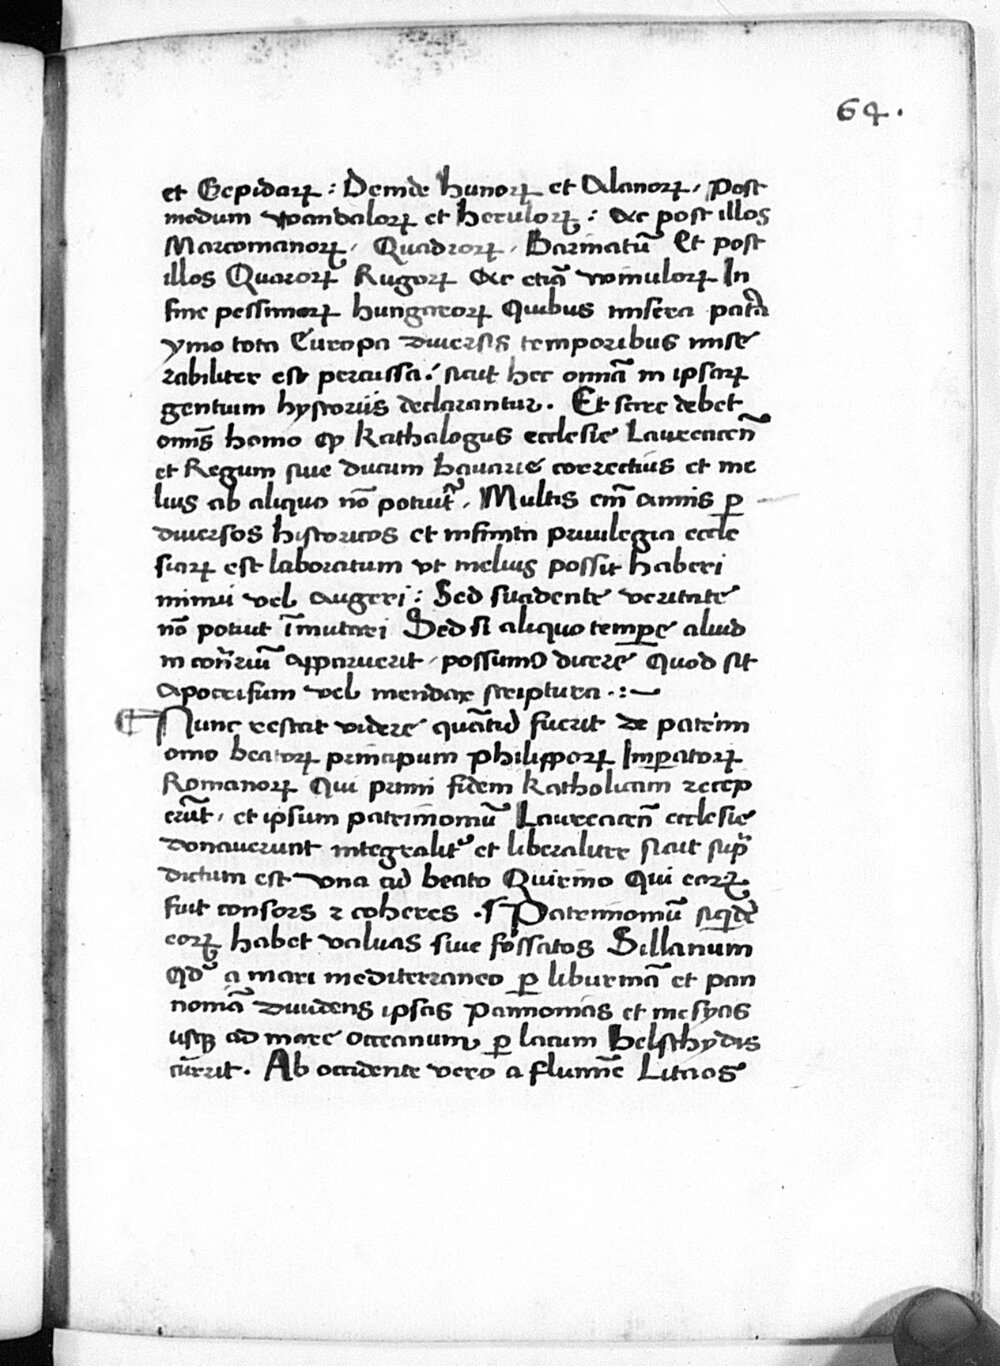 64.
et Gepidarꝝ : Deinde hunorꝝ et Alanorꝝ, Post
modum wandalorꝝ et herulorꝝ : Ac post illos
Marcomanorꝝ, Quadrorꝝ, Barmatū Et post
illos Quarorꝝ Rugorꝝ Ac etiā womulorꝝ In
fine pessimorꝝ hungarorꝝ Quibus misera
ymo tota Europa diuersis temporibus mise
rabiliter est percussa : sicut hec omnia in ipsarꝝ
gentium hystoriis declarantur. Et scire debet
omīs homo ꝙ Kathalogus ecclesie Laureaceñ
et Regum siue ducum bauarie correctius et me
lius ab aliquo nō potuit, Multis em̄ annis ꝑ
diuersos historicos et infinita priuilegia eccle
siarꝝ est laboratum vt melius possit haberi
minui vel augeri : Sed suadente veritate
nō potuit īmutari Sed si aliquo tempore aliud
in cont̄riū apparuerit, possumꝰ dicere Quod sit
apocrifum vel mendax scriptura . : ~
Nunc restat videre quātū fuerit de patrim
onio beatorꝝ principum philipporꝝ Imꝑatorꝝ
Romanorꝝ Qui primi fidem katholicam recep
erūt, et ipsum patrimoniū Laureaceñ ecclesie
donauerunt integralitꝰ et liberaliter sicut supͣ
dictum est vna cū beato Quirino Qui eorꝝ
fuit consors ⁊ coheres . Patrimoniū siqͥdē
eorꝝ habet valuas siue fossatos Sillanum
Qd a mari mediterraneo ꝑ liburniā et pan
noniā diuidens ipsas pannonias et mesyas
usqꝫ ad mare occeanum ꝑ lacum Helsthydis
cūrrit. Ab occidente vero a flumīe Liciaos